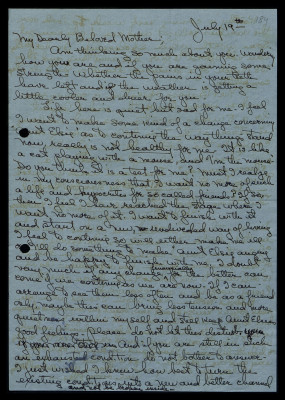 July 19th
My Dearly Beloved Mother:
Am thinking so much about you. Wonder
how you are and if you are gaining some
strength. Whether the pains in your
have left and if the weather is getting a
little cooler and nicer for you.
There is a quiet left and for me. I feel
I must make some kind of a change concerning
Aunt Elsie as to continue the way things stand
now, really is not healthy for me. It is like
a cat playing with a mouse and I'm the mouse.
Do you think it is a test for me? Must I realize
in my consciousness that I want no more of such
a life and hypocrite for so called friends? If so
then I feel I have reached the stage where I
want no more of it. I want to finish with it
and start on a new, way of living
I feel to continue so will either make me ill
or I'll do something to make Aunt Elsie angry
and be finished with me. I don't
very much if any change for the better can
come if we continue as we are now. If I can
arrange to see them less often and be as a friend
only, maybe this can bring less tension and more
quietness within myself and still keep Aunt Elsie's
good feelings. Please do not let this disturb you
And if you are still in such
an exhausted condition do not bother to answer.
I just wished I knew how best to turn the
existing conditions into a new and better channel
and not be broken inside.